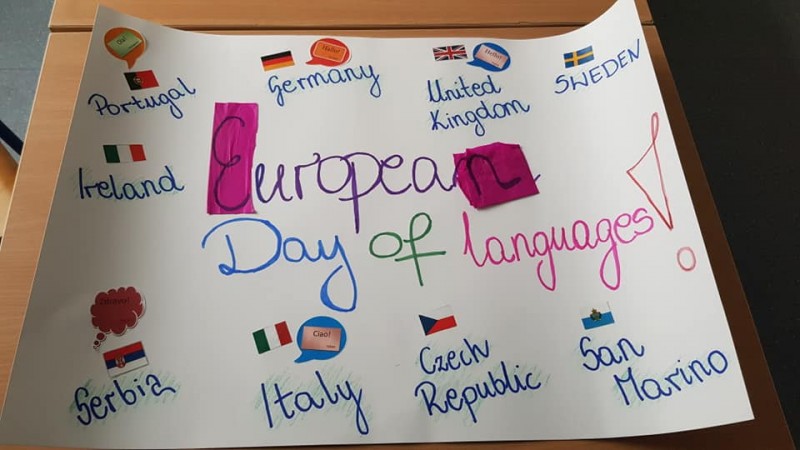 Portugal
Hallo!
Germany
Hello!
United
Kingdom
SWEDEN
Ireland
European
Day of languages!
Serbia
Ciao!
Italy
Czech
Republic
San
Marino